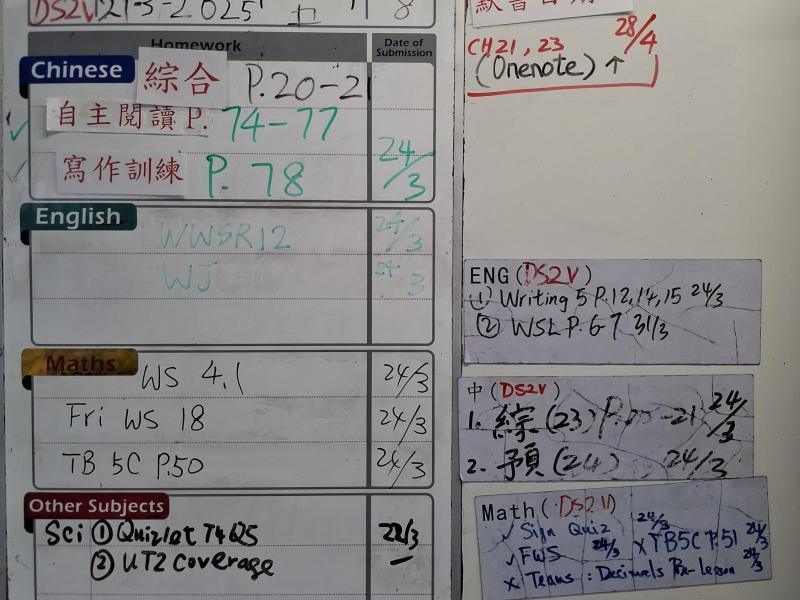 DS2V 21-3-2025 8
Homework Date of Submission
Chinese 綜合 P.20-21
自主閱讀 P. 74-77
寫作訓練 P. 78 24/3
English
WWSR12 24/3
WJ 24/3
Maths
WS 4.1 24/3
Fri WS 18 24/3
TB 5C P.50 24/3
Other Subjects
Sci ① Quizlet T4Q5 22/3
② UT2 coverage –
默書日期
CH21, 23 28/4
(Onenote) ↑
ENG (DS2V)
① Writing 5 P.12,14,15 24/3
② WSL P.6-7 31/3
中 (DS2V)
1. 綜 (23) P.20-21 24/3
2. 預 (24) 24/3
Math (DS2V)
✓ Sign Quiz 24/3
✓ FWS 24/3 x TB5C P.51 24/3
x Teams: Decimals Pre-Lesson 24/3